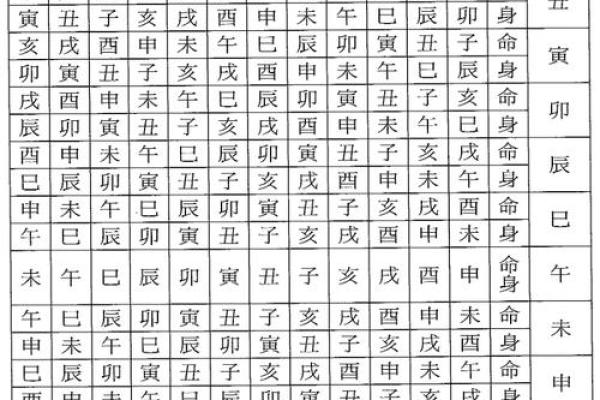 寅 丑 子 亥 戌 酉 申 未 午 巳 辰 卯 身 丑
亥 戌 酉 申 未 午 巳 辰 卯 寅 丑 子 命 寅
卯 寅 丑 子 亥 戌 酉 申 未 午 巳 辰 身
戌 酉 申 未 午 巳 辰 卯 寅 丑 子 亥 命 卯
辰 卯 寅 丑 子 亥 戌 酉 申 未 午 巳 身
酉 申 未 午 巳 辰 卯 寅 丑 子 亥 戌 命 辰
巳 辰 卯 寅 丑 子 亥 戌 酉 申 未 午 身
申 未 午 巳 辰 卯 寅 丑 子 亥 戌 酉 命 巳
午 巳 辰 卯 寅 丑 子 亥 戌 酉 申 未 身
未 午 巳 辰 卯 寅 丑 子 亥 戌 酉 申 命身 午
午 巳 辰 卯 寅 丑 子 亥 戌 酉 申 未 命 未
申 未 午 巳 辰 卯 寅 丑 子 亥 戌 酉 身
巳 辰 卯 寅 丑 子 亥 戌 酉 申 未 午 命 申
酉 申 未 午 巳 辰 卯 寅 丑 子 亥 戌 身